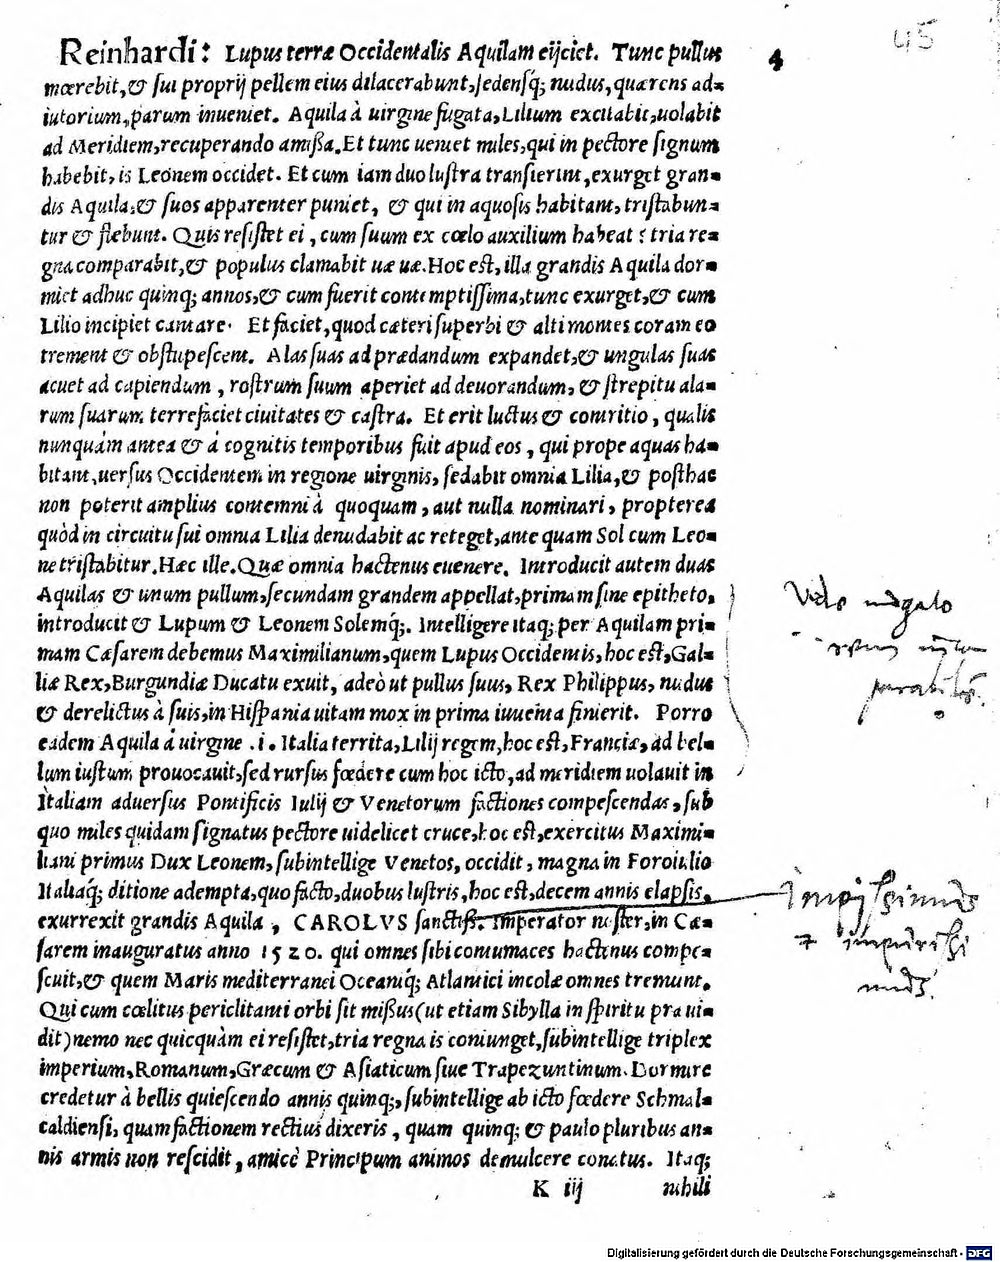 45
Reinhardi: Lupus terræ Occidentalis Aquilam eijciet. Tunc pullus 4
mœrebit,& sui proprij pellem eius dilacerabunt,sedensq́; nudus,quærens ad-
iutorium,parum inueniet. Aquila à uirgine fugata,Lilium excitabit,uolabit
ad Meridiem,recuperando amißa.Et tunc ueniet miles,qui in pectore signum
habebit,is Leonem occidet. Et cum iam duo lustra transierint,exurget gran-
dis Aquila,& suos apparenter puniet, & qui in aquosis habitant,tristabun-
tur & flebunt. Quis resistet ei, cum suum ex cœlo auxilium habeat? tria re-
gna comparabit,& populus clamabit uæ uæ.Hoc est,illa grandis Aquila dor-
miet adhuc quinq; annos,& cum fuerit contemptissima,tunc exurget,& cum
Lilio incipiet cantare. Et faciet,quod cæteri superbi & alti montes coram eo
trement & obstupescent. Alas suas ad prædandum expandet,& ungulas suas
acuet ad capiendum, rostrum suum aperiet ad deuorandum,& strepitu ala-
rum suarum terrefaciet ciuitates & castra. Et erit luctus & contritio, qualis
nunquàm antea & à cognitis temporibus fuit apud eos, qui prope aquas ha-
bitant,uersus Occidentem in regione uirginis, sedabit omnia Lilia,& posthac
non poterit amplius contemni à quoquam, aut nulla nominari, propterea
quòd in circuitu sui omnia Lilia denudabit ac reteget,ante quam Sol cum Leo-
ne tristabitur.Hæc ille.Quæ omnia hactenus euenere. Introducit autem duas
Aquilas & unum pullum,secundam grandem appellat,primam sine epitheto,
introducit & Lupum & Leonem Solemq́;. Intelligere itaq; per Aquilam pri-
mam Cæsarem debemus Maximilianum,quem Lupus Occidentis,hoc est,Gal-
liæ Rex,Burgundiæ Ducatu exuit, adeò ut pullus suus, Rex Philippus, nudus
& derelictus à suis,in Hispania uitam mox in prima iuuenta finierit. Porro
eadem Aquila à uirgine .i. Italia territa,Lilij regem,hoc est,Franciæ,ad bel-
lum iustum prouocauit,sed rursus fœdere cum hoc icto,ad meridiem uolauit in
Italiam aduersus Pontificis Iulij & Venetorum factiones compescendas, sub
quo miles quidam signatus pectore uidelicet cruce,hoc est,exercitus Maximi-
liani primus Dux Leonem,subintellige Venetos, occidit, magna in Foroiulio
Italiaq́; ditione adempta,quo facto,duobus lustris,hoc est,decem annis elapsis,
exurrexit grandis Aquila, CAROLVS sanctiß. Imperator noster,in Cæ-
sarem inauguratus anno 1520. qui omnes sibi contumaces hactenus compe-
scuit,& quem Maris mediterranei Oceaniq́; Atlantici incolæ omnes tremunt.
Qui cum cœlitus periclitanti orbi sit mißus(ut etiam Sibylla in spiritu præui-
dit)nemo nec quicquàm ei resistet,tria regna is coniunget,subintellige triplex
imperium,Romanum,Græcum & Asiaticum siue Trapezuntinum. Dormire
credetur à bellis quiescendo annis quinq;,subintellige ab icto fœdere Schmal-
caldiensi, quam factionem rectius dixeris, quam quinq; & paulo pluribus an-
nis armis non rescidit, amicè Principum animos demulcere conatus. Itaq;
K iij nihili
Impijssimus
& impurissi
mus.
Digitalisierung gefördert durch die Deutsche Forschungsgemeinschaft - DFG